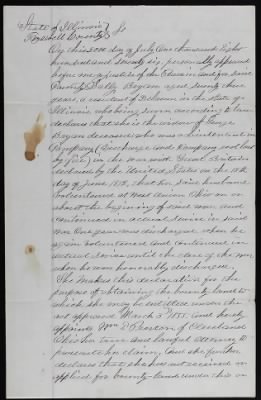 State of Illinois
Tazwell County } Ss
On this 30th day of July One thousand Eight
hundred and Seventy six, personally appeared
before me a justice of the Peace in and for said
County Sally Bryan aged Seventy three
years, a resident of Delavan in the state of
Illinois who being sworn according to law
declares that she is the widow of George
Bryan deceased who was a Lieutenant in
Company
by fire) in the war with Great Britain
declared by the United States on the 18th
day of June 1812, that her said husband
volunteered at West Union Ohio on or
about the beginning of said war and
continued in actual service in said
war One year was discharged when he
again volunteered and continued in
actual service until the close of the war
when he was honorably discharged
She makes this declaration for the
purpose of obtaining the bounty land to
which she may be entitled under the
act approved March 3d 1855. And hereby
appoints Wm P Thornton of Cleveland
Ohio her true and lawful attorney to
prosecute her claim, And she further
declares that she has not received or
applied for bounty land under this or